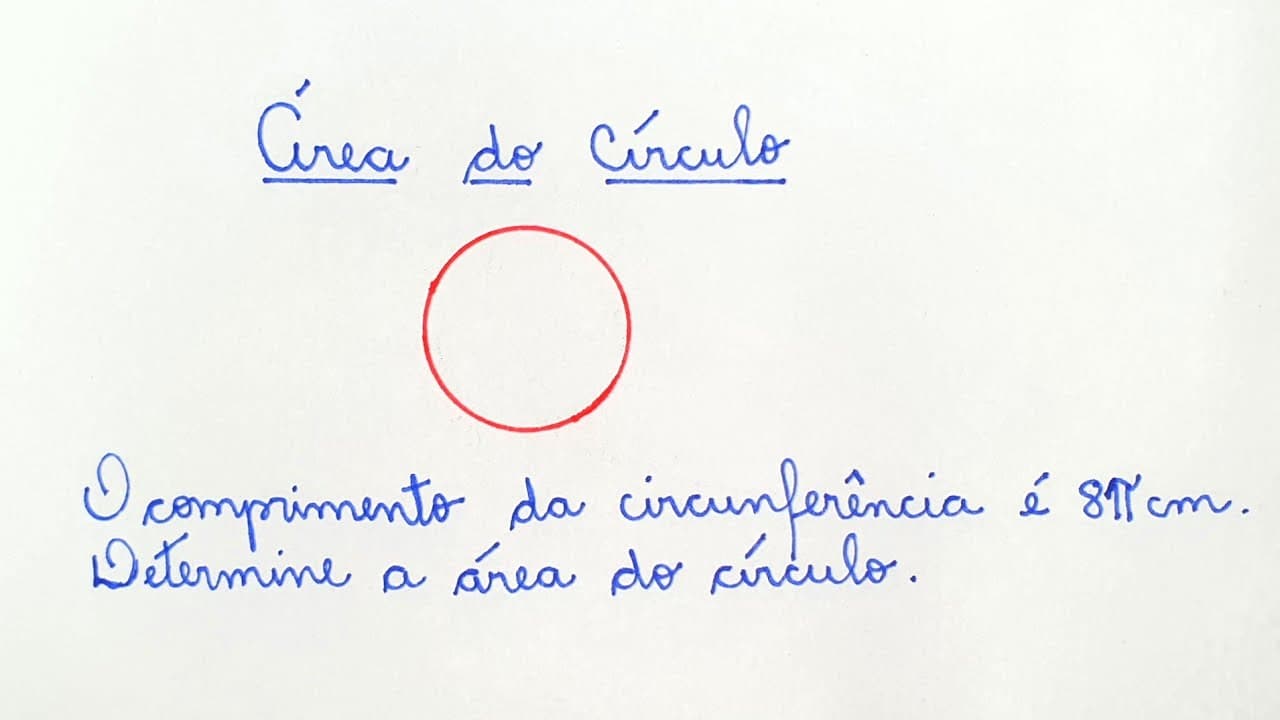 Área do Círculo
O comprimento da circunferência é 8π cm.
Determine a área do círculo.